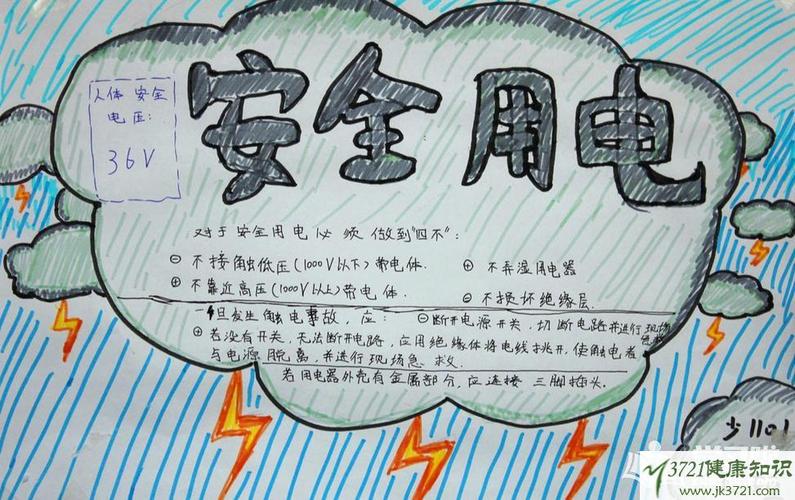 安全用电
人体安全
电压:
36V
对于安全用电必须做到"四不":
⊖ 不接触低压(1000V以下)带电体.
⊕ 不弄湿用电器
⊕ 不靠近高压(1000V以上)带电体.
⊖ 不损坏绝缘层.
一旦发生触电事故,应: ⊖断开电源开关,切断电路并进行现场急救
⊕ 若没有开关,无法断开电路,应用绝缘体将电线挑开,使触电者
与电源脱离,并进行现场急救.
若用电器外壳有金属部分,应连接三脚插头.
少1101
3721健康知识
www.jk3721.com